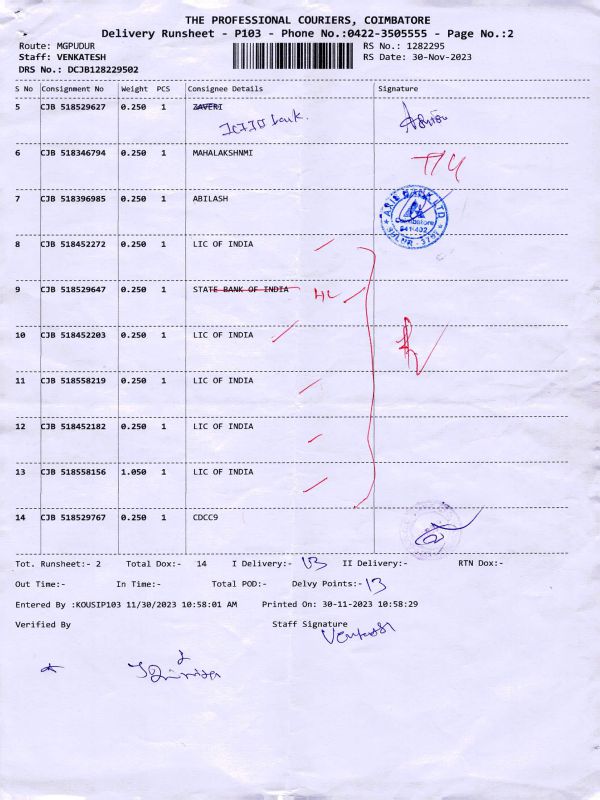 THE PROFESSIONAL COURIERS, COIMBATORE
Delivery Runsheet - P103 - Phone No.:0422-3505555 - Page No.:2
Route: MGPUDUR RS No.: 1282295
Staff: VENKATESH RS Date: 30-Nov-2023
DRS No.: DCJB128229502
S No Consignment No Weight PCS Consignee Details Signature
5 CJB 518529627 0.250 1 ZAVERI
bank.
6 CJB 518346794 0.250 1 MAHALAKSHNMI
7 CJB 518396985 0.250 1 ABILASH
AXIS BANK LTD
Coimbatore
641402
8 CJB 518452272 0.250 1 LIC OF INDIA
9 CJB 518529647 0.250 1 STATE BANK OF INDIA
10 CJB 518452203 0.250 1 LIC OF INDIA
11 CJB 518558219 0.250 1 LIC OF INDIA
12 CJB 518452182 0.250 1 LIC OF INDIA
13 CJB 518558156 1.050 1 LIC OF INDIA
14 CJB 518529767 0.250 1 CDCC9
Tot. Runsheet:- 2 Total Dox:- 14 I Delivery:- 13 II Delivery:- RTN Dox:-
Out Time:- In Time:- Total POD:- Delvy Points:- 13
Entered By :KOUSIP103 11/30/2023 10:58:01 AM Printed On: 30-11-2023 10:58:29
Verified By Staff Signature
Venkatesh